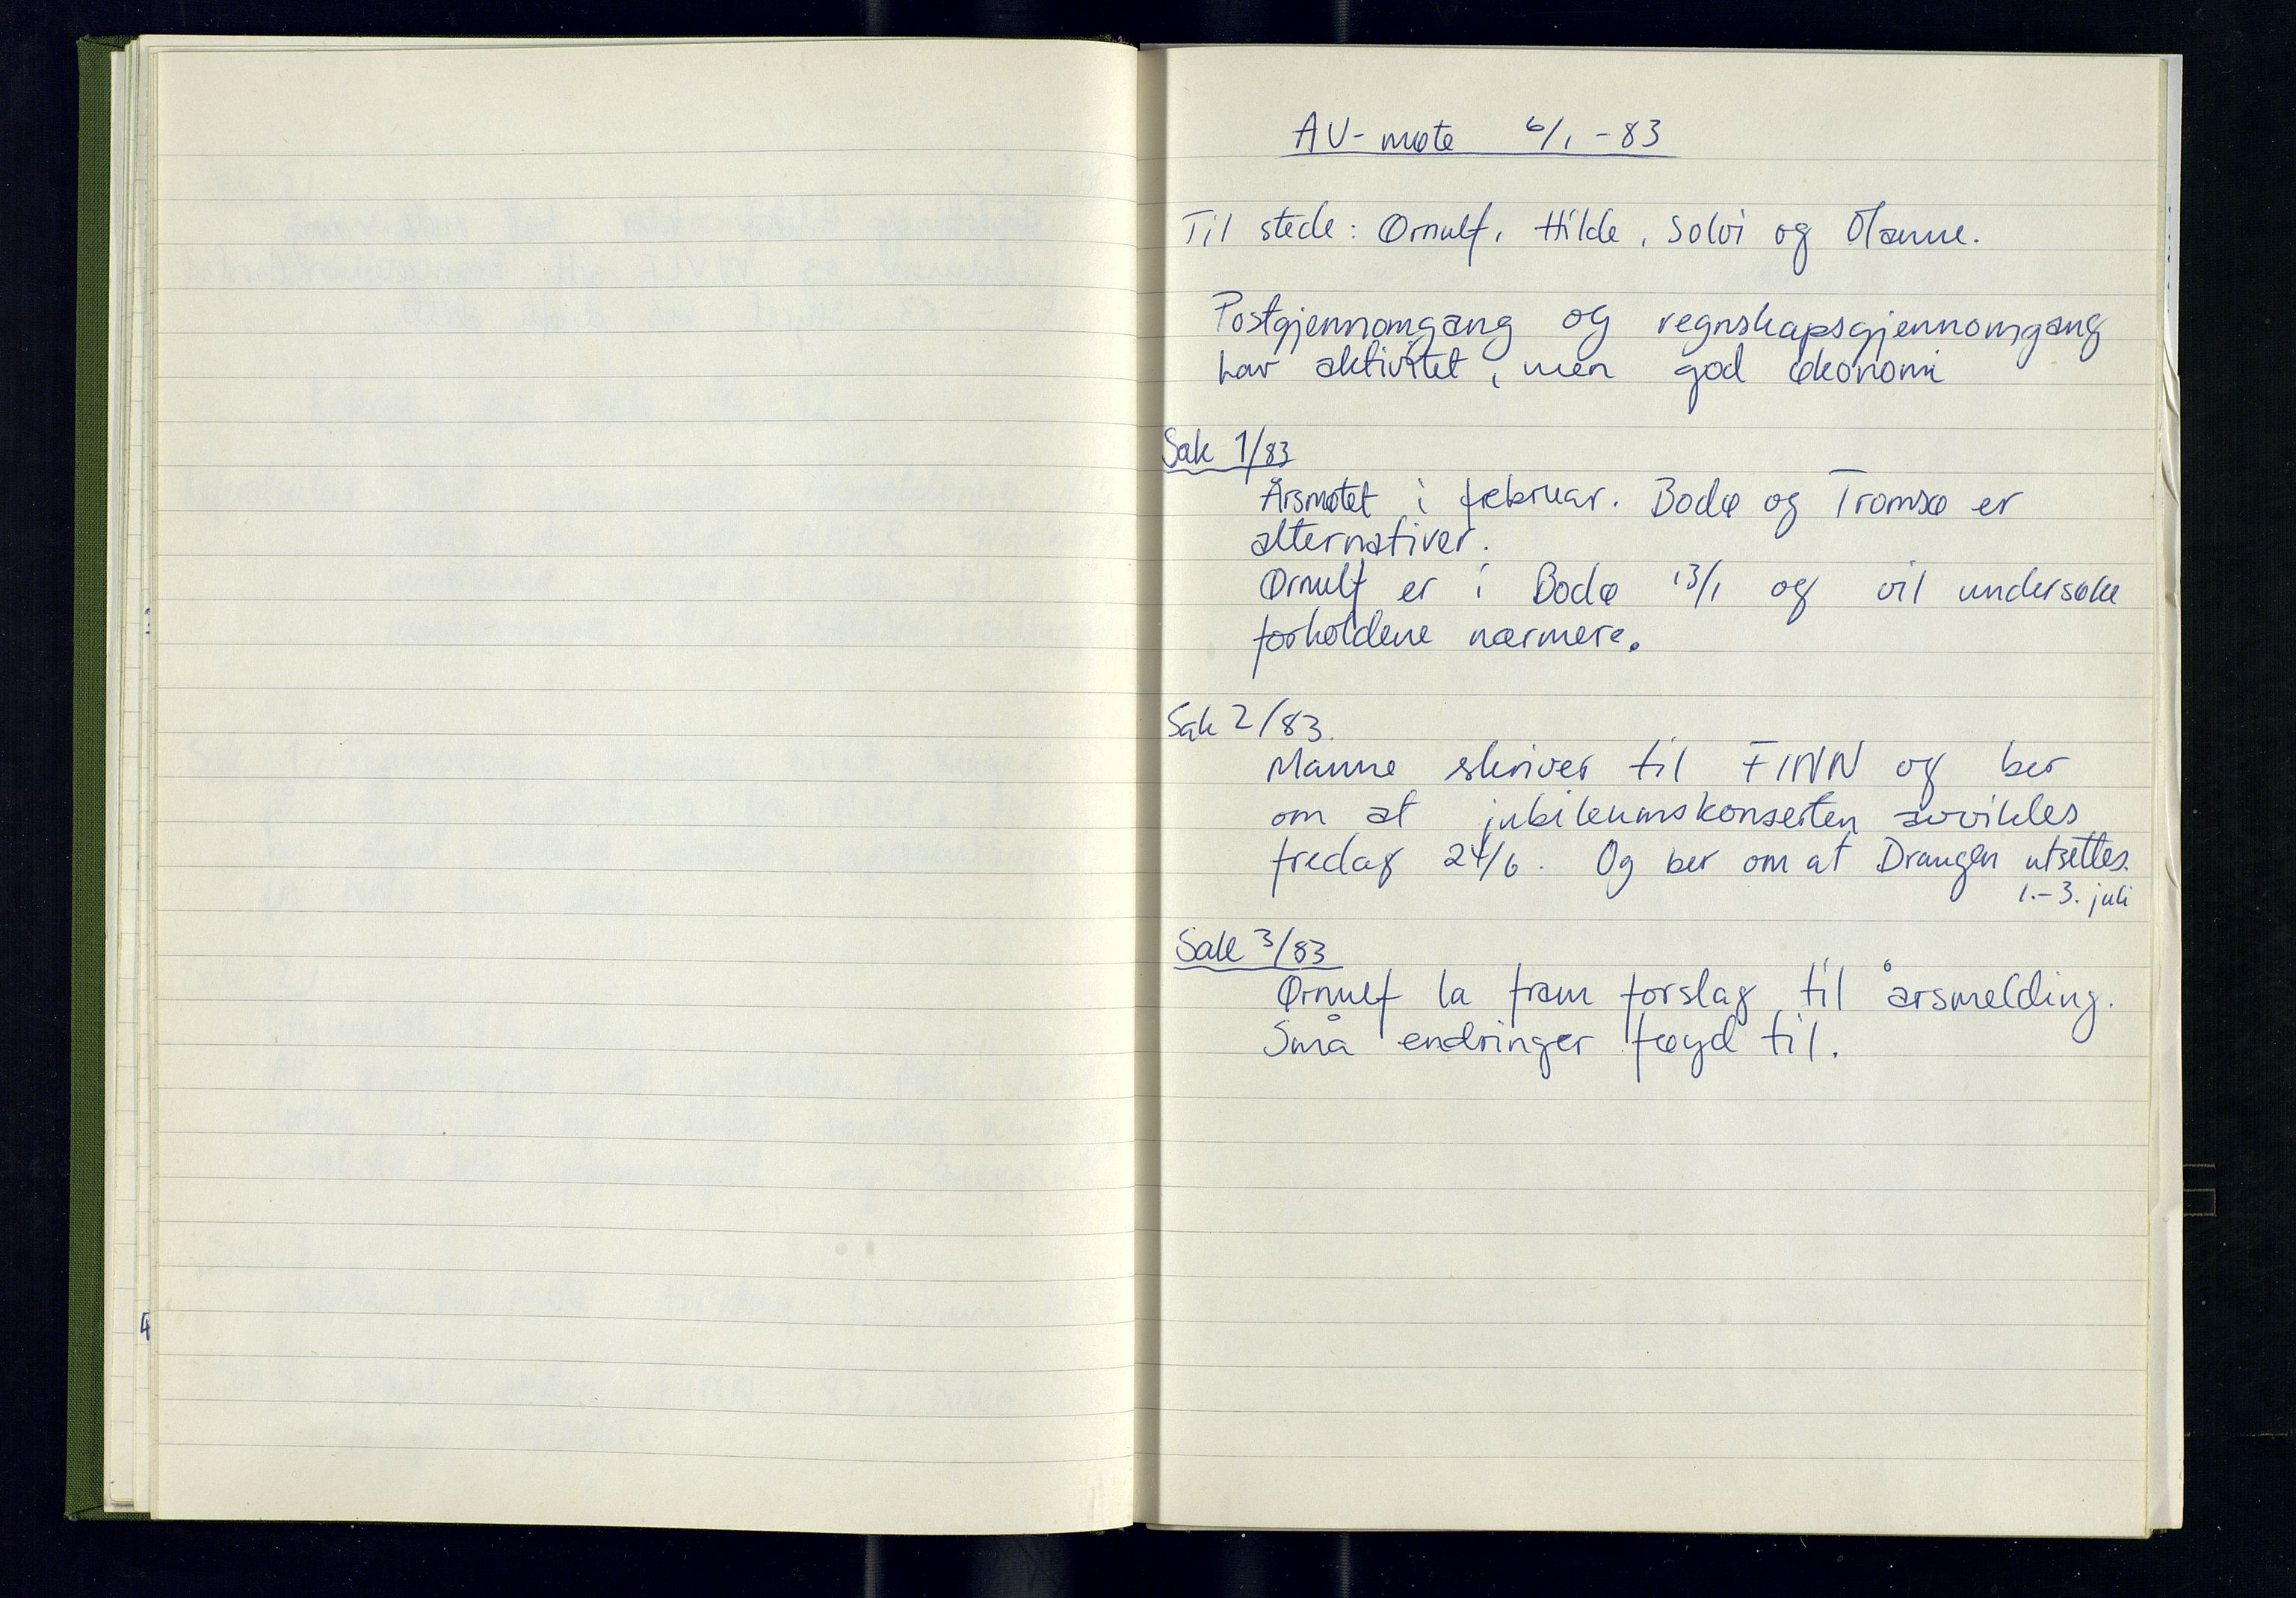 AV-møte 6/1-83
Til stede: Ørnulf, Hilde, Solvi og Manne.
Postgjennomgang og regnskapsgjennomgang
Lav aktivitet, men god økonomi
Sak 1/83
Årsmøtet i februar. Bodø og Tromsø er
alternativer.
Ørnulf er i Bodø 13/1 og vil undersøke
forholdene nærmere.
Sak 2/83.
Manne skriver til FINN og ber
om at jubileumskonserten avvikles
fredag 24/6. Og ber om at Draugen utsettes.
1.-3. juli
Sak 3/83
Ørnulf la fram forslag til årsmelding.
Små endringer føyd til.